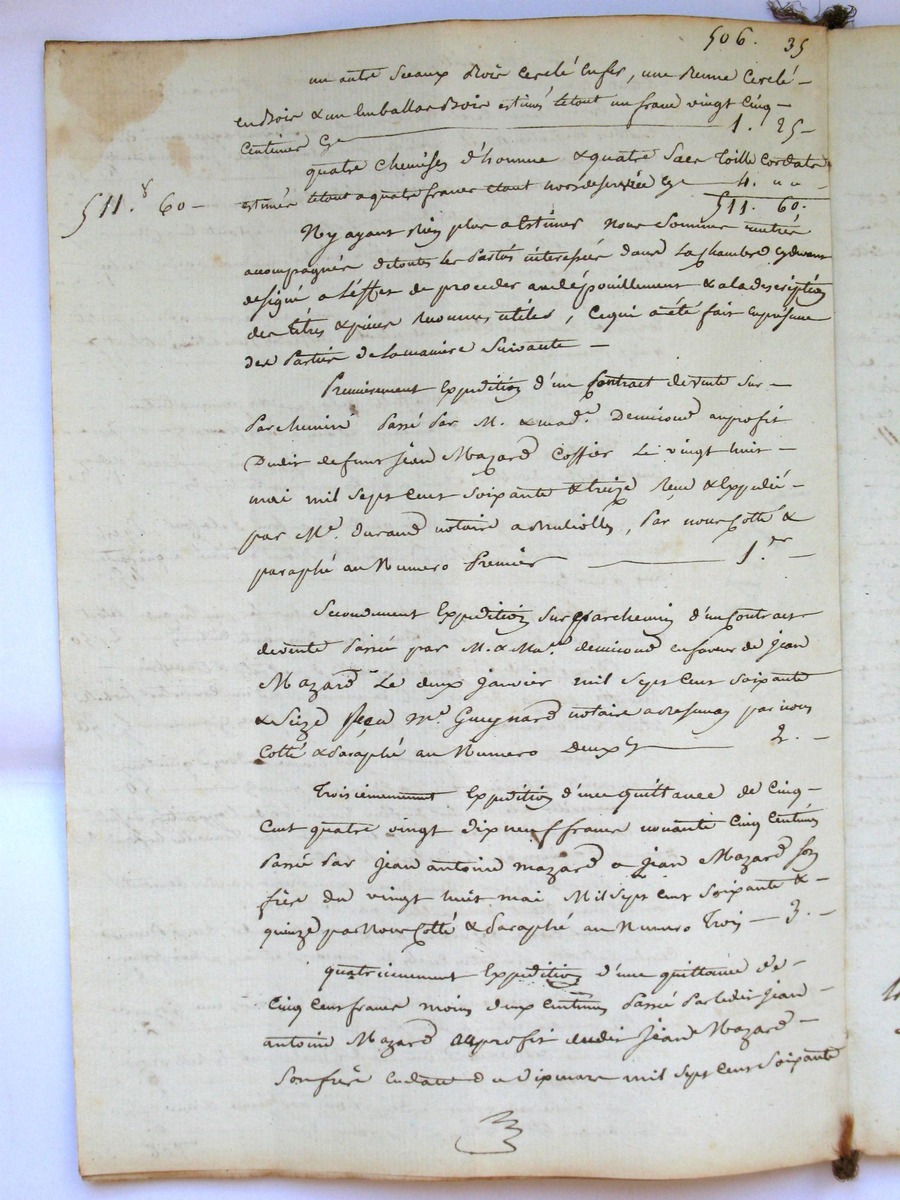 506. 35
un autre Sceaux Bois Cerclé En fer, une Benne Cerclé
En Bois & un Emballas Bois estimés le tout un franc vingt Cinq
Centimes Cy 1. 25
quatre Chemises d'homme & quatre Sacs Toille Cordats
estimés le tout a quatre francs etant hors de service Cy 4. " "
511. 60.
511.f 60
N'y ayant Rien plus a Estimer Nous Sommes rentrés
accompagnés de toutes les Partës interessées dans La Chambre Cy devant
designé a L'Effet de proceder au dépouillement & a la description
des titres & pieces Reconnus utiles, Ce qui a été fait En presence
des Parties De la maniere Suivante
Premierement Expedition d'un Contract de vente Sur
Parchemin Passé Par M. & mad.e au profit
Dudit defunt Jean Mazard Coffier Le vingt huit
mai mil Sept Cent Soixante & treize Reçu & Expedié
par M.e Durand notaire a par nous Cotté &
paraphé au Numero Premier 1.er
Secondement Expedition Sur parchemin d'un Contract
de vente Passé par M. & Ma.e En faveur de Jean
Mazard Le deux Janvier mil Sept Cent Soixante
& Seize Reçu M.e Guignard notaire a par nous
Cotté & Paraphé au Numero deux Cy 2.
Troisiemement Expedition d'une quittance de Cinq
Cent quatre vingt dix neuf francs nonante Cinq Centimes
Passé Par Jean antoine Mazard a Jean Mazard Son
frère du vingt huit mai Mil Sept Cent Soixante &
quinze par Nous Cotté & Paraphé au Numero Trois 3.
quatriemement Expedition d'une quittance de
Cinq Cent francs moins deux Centimes Passé Par ledit Jean
antoine Mazard au profit dudit Jean Mazard
Son frère En date du dix mars mil Sept Cent Soixante